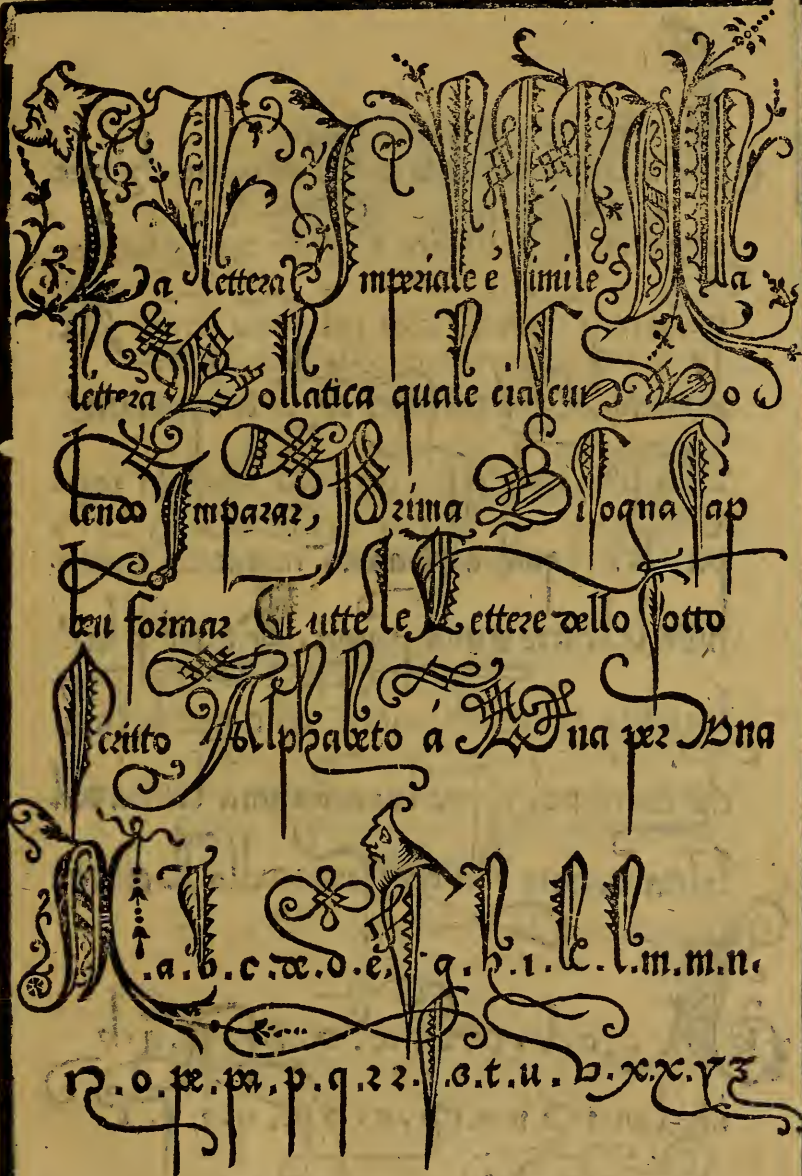 La lettera Imperiale é simile Alla
lettera Bollatica quale ciascuno Vo
lendo Imparar, Prima Bisogna sap
ben formar Tutte le Lettere dello sotto
scritto Alphabeto á Una per Una
A .a.b.c.de.d.e.f.g.h.i.k.l.m.m.n.
n.o.pe.pa.p.q.r r.ſ.s.t.u.v.x.x.y z